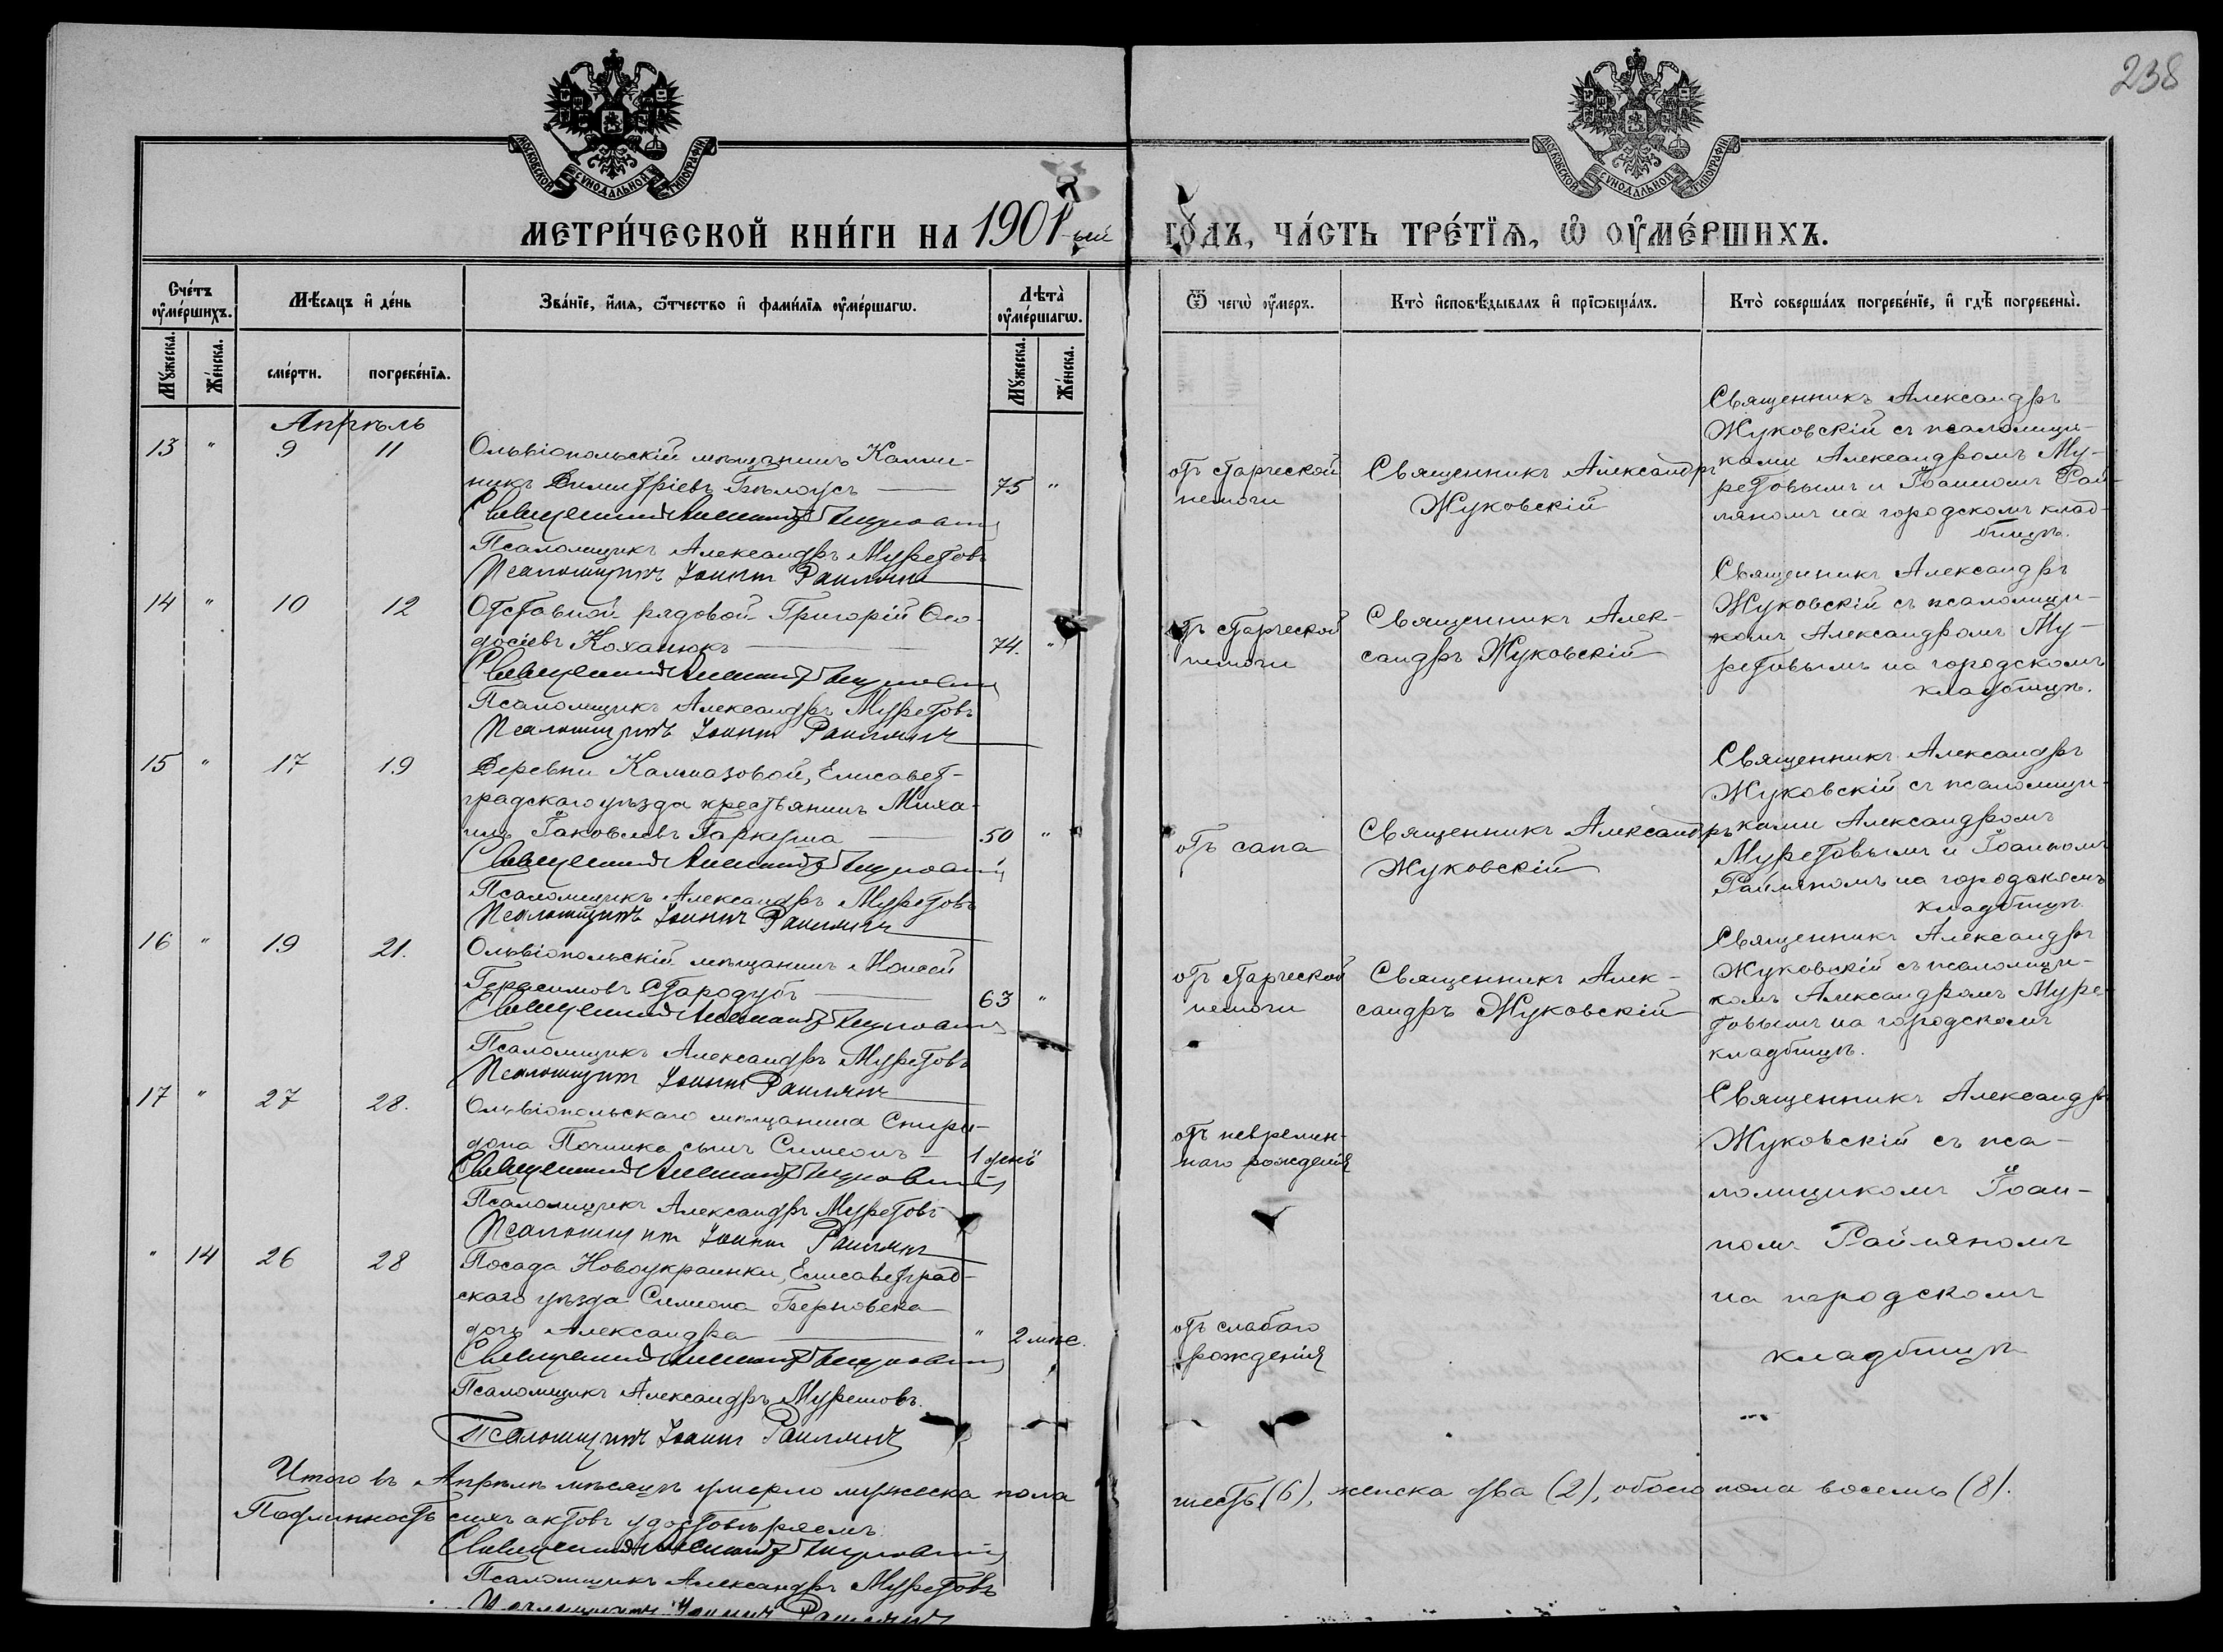 238
МОСКОВСКОЙ СѴНОДАЛЬНОЙ ТИПОГРАФІИ
МОСКОВСКОЙ СѴНОДАЛЬНОЙ ТИПОГРАФІИ
МЕТРИ́ЧЕСКОЙ КНИ́ГИ НА 1901-ый ГО́ДЪ, ЧА́СТЬ ТРЕ́ТІѦ, Ѡ ОУМЕ́РШИХЪ.
Сче́тъ оуме́ршихъ.
Мѣ́сяцъ и де́нь
Зва́нїе, и́мѧ, ѿтчество и фами́лїѧ оуме́ршагѡ.
Лѣта̀ оуме́ршагѡ.
Ѿ чегѡ̀ оу́меръ.
Кто̀ исповѣ́дывалъ и прїѡбща́лъ.
Кто̀ соверша́лъ погребе́нїе, и гдѣ̀ погребены̀.
Му́жеска.
Же́нска.
сме́рти.
погребе́нїѧ.
Му́жеска.
Же́нска.
Апрѣль
13 " 9 11
Ольвіопольскій мѣщанинъ Калли-
никъ Димитріевъ Бѣлоусъ — 75 "
Священникъ Александръ Жуковскій
Псаломщикъ Александръ Муретовъ
Псаломщикъ Іоаннъ Раилянъ
отъ старческой
немочи
Священникъ Александръ
Жуковскій
Священникъ Александръ
Жуковскій съ псаломщи-
ками Александромъ Му-
ретовымъ и Іоанномъ Рай-
ляномъ на городскомъ клад-
бищѣ.
14 " 10 12
Отставной рядовой Григорій Ѳео-
досіевъ Коханюкъ — 74. "
Священникъ Александръ Жуковскій
Псаломщикъ Александръ Муретовъ
Псаломщикъ Іоаннъ Раилянъ
отъ старческой
немочи
Священникъ Алек-
сандръ Жуковскій
Священникъ Александръ
Жуковскій съ псаломщи-
комъ Александромъ Му-
ретовымъ на городскомъ
кладбищѣ.
15 " 17 19
Деревни Калмазовой, Елисавет-
градскаго уѣзда крестьянинъ Миха-
илъ Іаковлевъ Гаркуша — 50 "
Священникъ Александръ Жуковскій
Псаломщикъ Александръ Муретовъ
Псаломщикъ Іоаннъ Раилянъ
отъ сапа
Священникъ Александръ
Жуковскій
Священникъ Александръ
Жуковскій съ псаломщи-
ками Александромъ
Муретовымъ и Іоанномъ
Райляномъ на городскомъ
кладбищѣ.
16 " 19 21.
Ольвіопольскій мѣщанинъ Моисей
Герасимовъ Стародубъ — 63 "
Священникъ Александръ Жуковскій
Псаломщикъ Александръ Муретовъ
Псаломщикъ Іоаннъ Раилянъ
отъ старческой
немочи
Священникъ Алек-
сандръ Жуковскій
Священникъ Александръ
Жуковскій съ псаломщи-
комъ Александромъ Муре-
товымъ на городскомъ
кладбищѣ.
17 " 27 28.
Ольвіопольскаго мѣщанина Спири-
дона Починка сынъ Симеонъ — 1 день "
Священникъ Александръ Жуковскій
Псаломщикъ Александръ Муретовъ
Псаломщикъ Іоаннъ Раилянъ
отъ невремен-
наго рожденія
Священникъ Александръ
Жуковскій съ пса-
ломщикомъ Іоан-
номъ Райляномъ
на городскомъ
кладбищѣ
" 14 26 28
Посада Новоукраинки, Елисаветград-
скаго уѣзда Симеона
дочь Александра — " 2 мѣс.
Священникъ Александръ Жуковскій
Псаломщикъ Александръ Муретовъ.
Псаломщикъ Іоаннъ Раилянъ
отъ слабаго
рожденія
Итого въ Апрѣлѣ мѣсяцѣ умерло мужеска пола шесть (6), женска два (2), обоего пола восемь (8).
Подлинность сихъ актовъ удостовѣряемъ:
Священникъ Александръ Жуковскій
Псаломщикъ Александръ Муретовъ
Псаломщикъ Іоаннъ Раилянъ